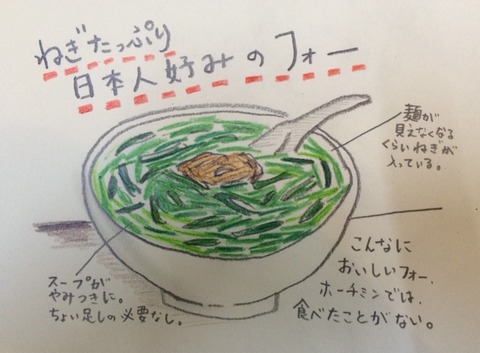 ねぎたっぷり
日本人好みのフォー
麺が
見えなくなる
くらいねぎが
入っている。
スープが
やみつきに。
ちょい足しの必要なし。
こんなに
おいしいフォー、
ホーチミンでは、
食べたことがない。